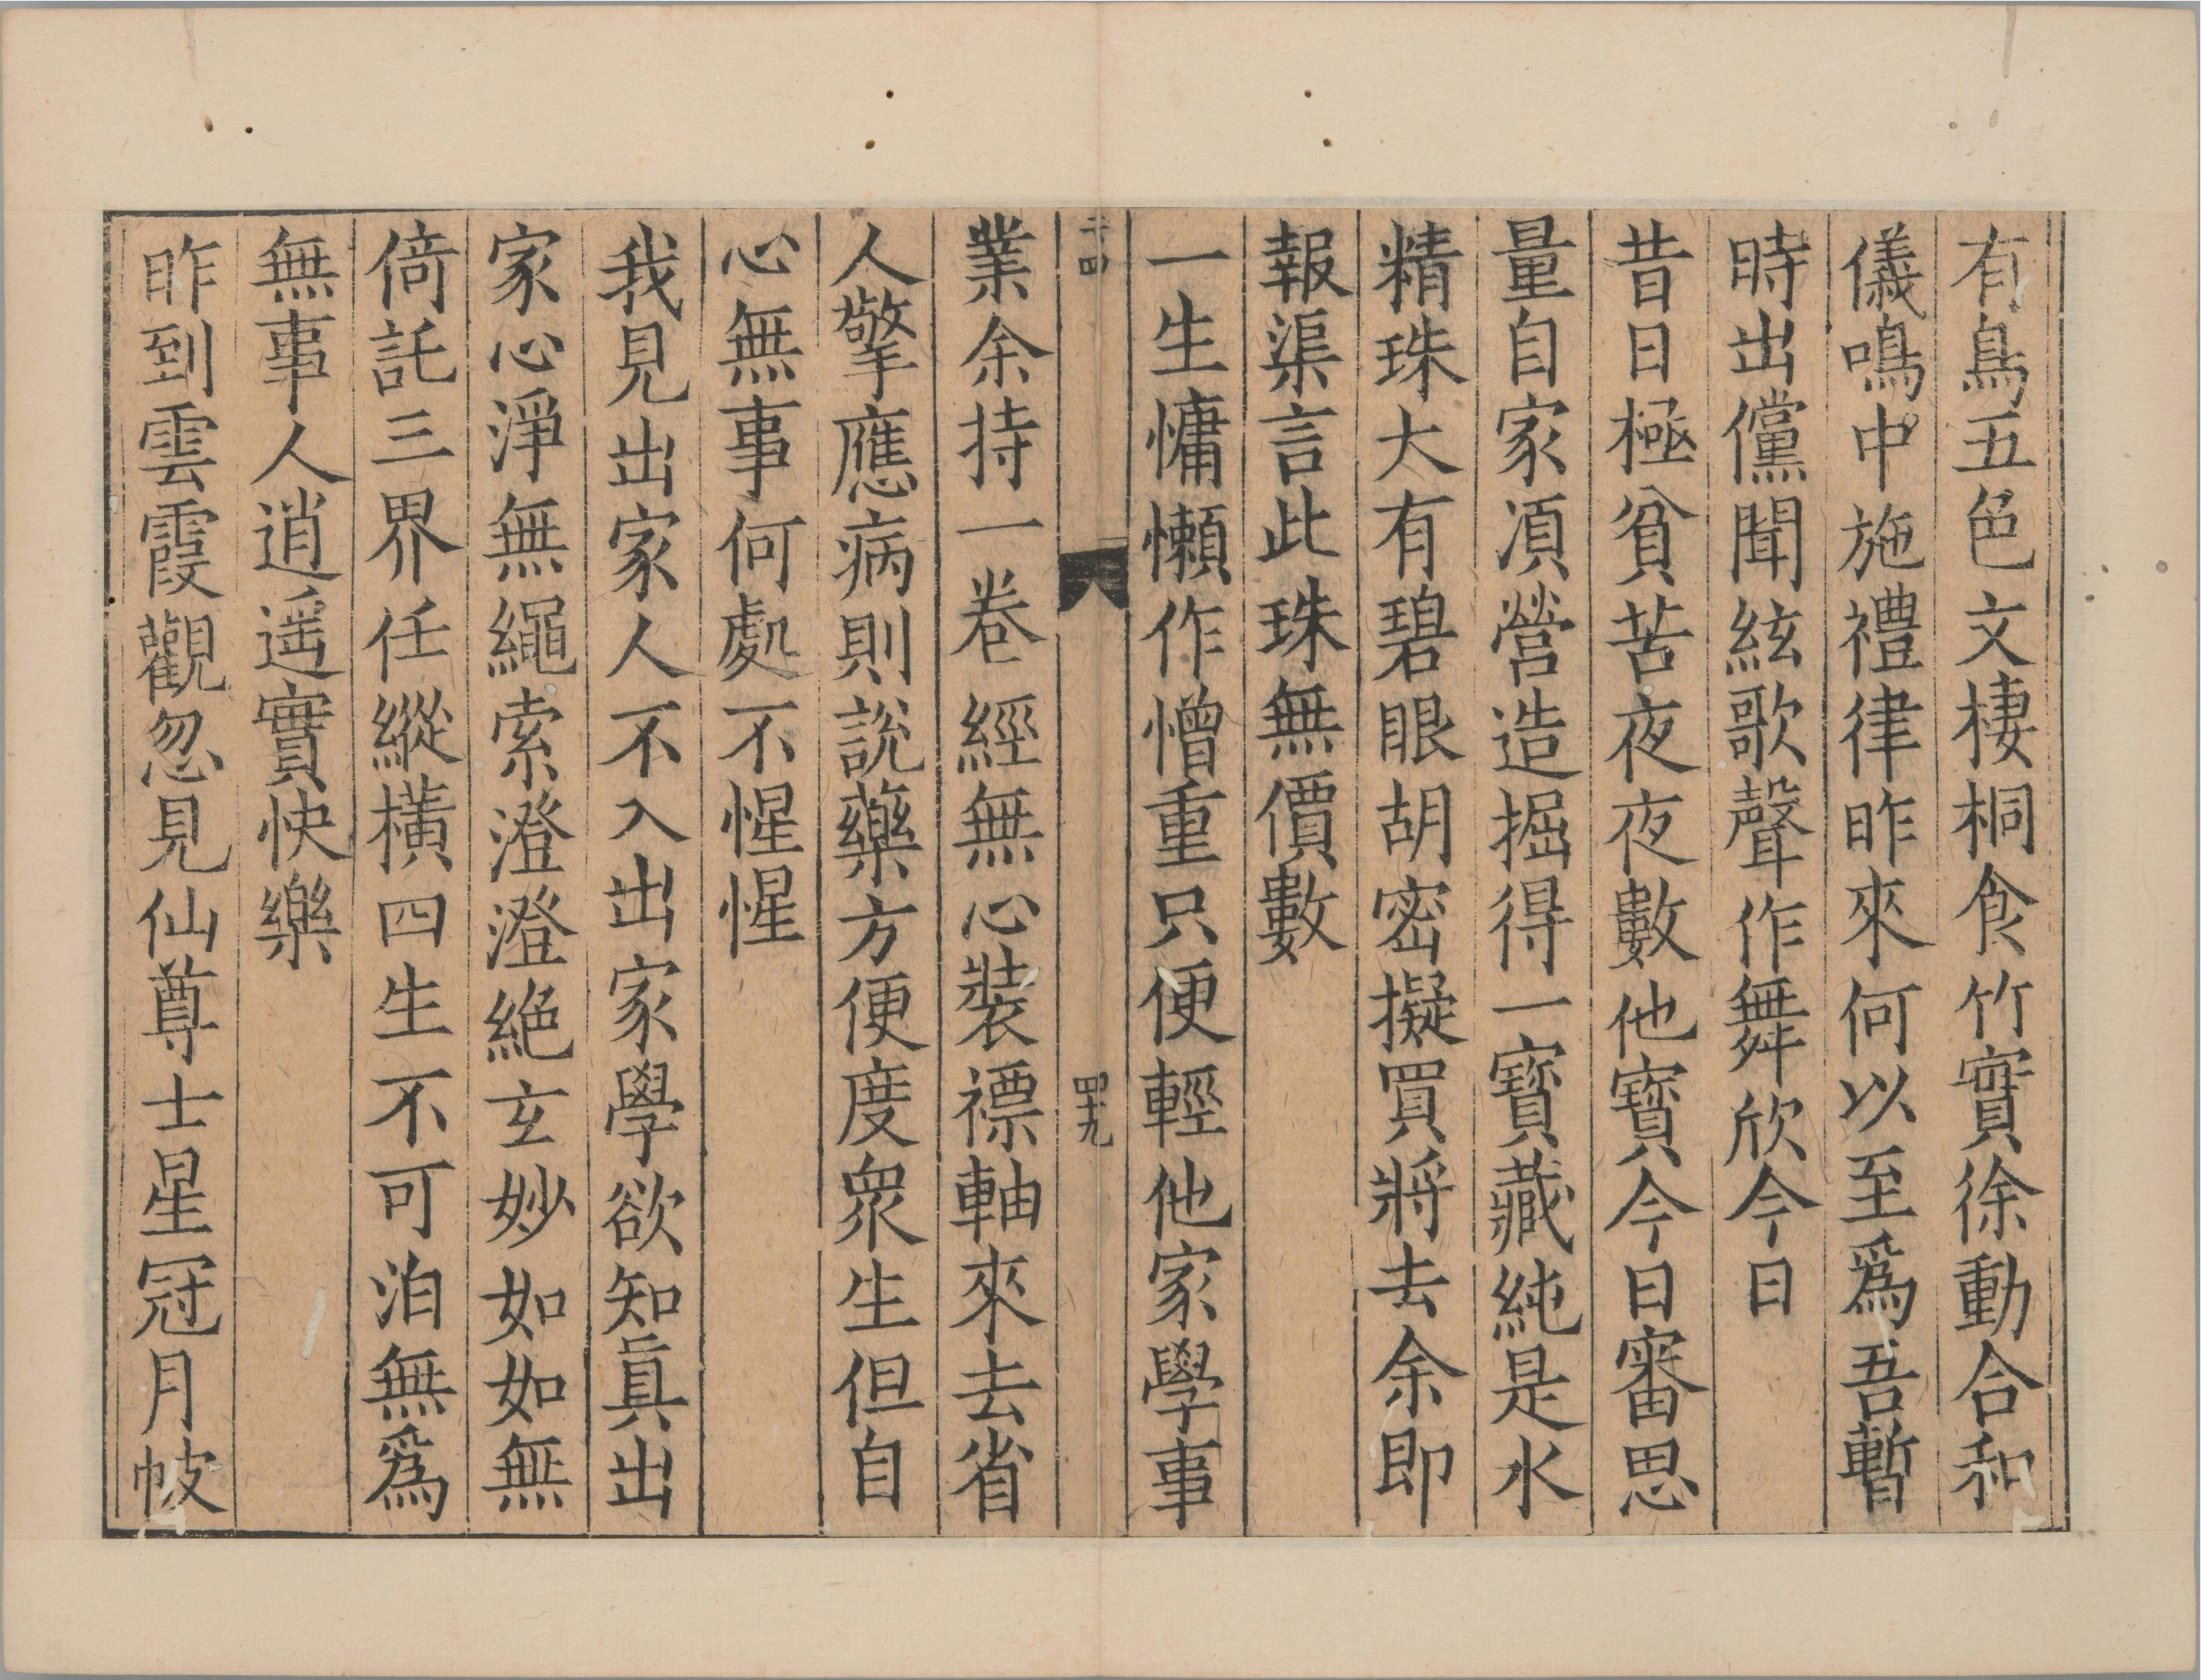 有鳥五色文棲桐食竹實徐動合和
儀鳴中施禮律昨來何以至爲吾暫
時出儻聞絃歌聲作舞欣今日
昔日極貧苦夜夜數他寶今日審思
量自家須營造掘得一寶藏純是水
精珠大有碧眼胡密擬買將去余即
報渠言此珠無價數
一生慵懶作憎重只便輕他家學事
四十九
業余持一卷經無心裝褾軸來去省
人擎應病則說藥方便度衆生但自
心無事何處不惺惺
我見出家人不入出家學欲知眞出
家心淨無繩索澄澄絕玄妙如如無
倚託三界任縱橫四生不可泊無爲
無事人逍遥實快樂
昨到雲霞觀忽見仙尊士星冠月帔